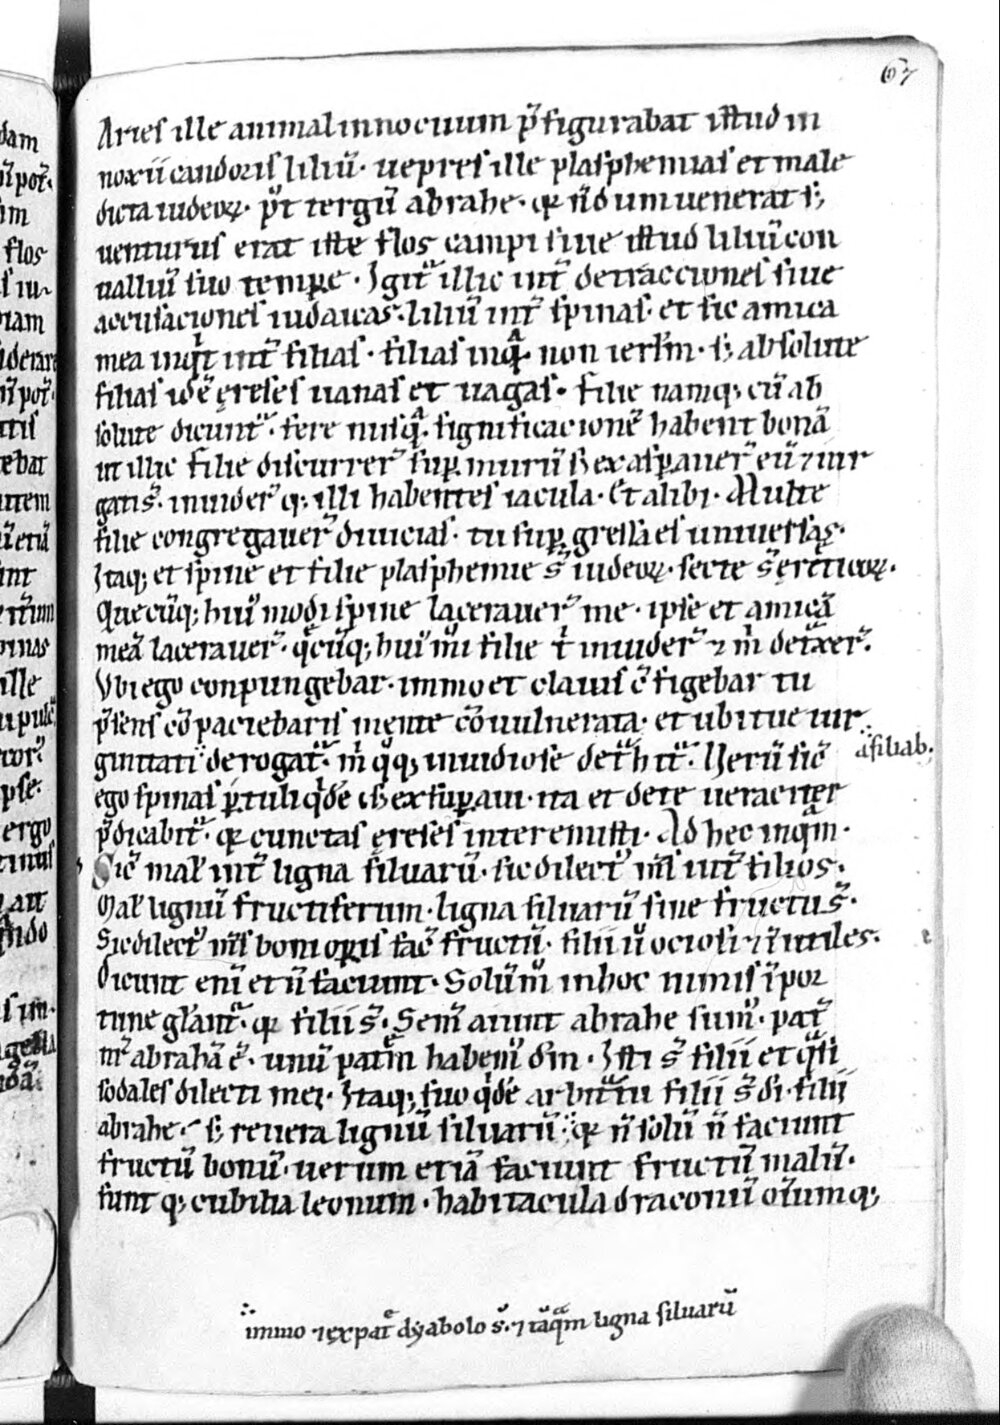 67
Aries ille animal innocuum p̄figurabat istud in
noxii candoris liliū· uepres ille plasphemias et male
dicta iudeoꝝ· p̄t tergū abrahe· qꝛ n̄dum uenerat sꝫ
uenturus erat iste flos campi siue istud liliū con
uallium suo tempe· Igit᷑ illic int̄ detracciones siue
accusaciones iudaicas· liliū int̄ spinas· et sic amica
mea inqͥt int̄ filias· filias inqͣ· non ierłm· sꝫ absolute
filias id ē ęreses uanas et uagas· filie namqꝫ cū ab
solute dicunt᷑· fere nusqͣ· significacionē habent bonā
ut illic filie discurrer̄ sup murū sꝫ exaspauer̄ eū ⁊ iur
gatis̄· inuider̄ qꝫ illi habentes iacula· Et alibi· Multe
filie congregauer̄ diuicias· tu sup gressa es uniuersas·
Itaqꝫ et spine et filie plasphemie s̄ iudeoꝝ· secte s̄ ęreticoꝝ·
Que cūqꝫ huiꝰmodi spine lacerauer̄ me· ipse et amicā
meā lacerauer̄· q̄cūqꝫ huiꝰm̊i filie t̊ inuider̄ ⁊ m̊ det̾xer̄·
Vbi ego conpungebar· immo et clauis c̄figebar tu
p̄sens cōpaciebaris mente cōuulnerata· et ubi tue uir
ginitati derogat᷑· m̊ qͦqꝫ inuidiose det̾hit᷑· Verū sic̄
ā filiab;
ego spinas ptuli qͥdē sꝫ exsupaui· ita et dete ueraciter
p̄dicabit᷑· qꝛ cunctas ęreses interemisti· Ad hec inqͣm·
Sic̄ mał int̄ ligna siluarū· sic dilectꝰ mꝰs int̄ filios·
Mał lignū fructiferum· ligna siluarū sine fructu s̄·
Sic dilectꝰ mꝰs boni opis fac̄ fructū· filii ū ociosi ⁊ īutiles·
Dicunt enī et n̄ faciunt· Solūmꝰ in hoc nimis īpor
tune głant᷑· qꝛ filii s̄· Semꝰ aiunt abrahe sumꝰ· pat̄
nr̄ abrahā ē· unū patrem habemꝰ dm̄· Isti s̄ filii et qͣsi
sodales dilecti mei· Itaqꝫ suo qͥdē arbitͥu filii s̄ di· filii
abrahe· sꝫ reuera lignū siluarū· qꝛ n̄ solū n̄ faciunt
fructū bonū· uerum etiā faciunt fructū malū·
sunt qꝫ cubilia leonum· habitacula draconū oīumqꝫ
immo ⁊ ex patͤ dyabolo s̄· ⁊ tāqͣm ligna siluarū